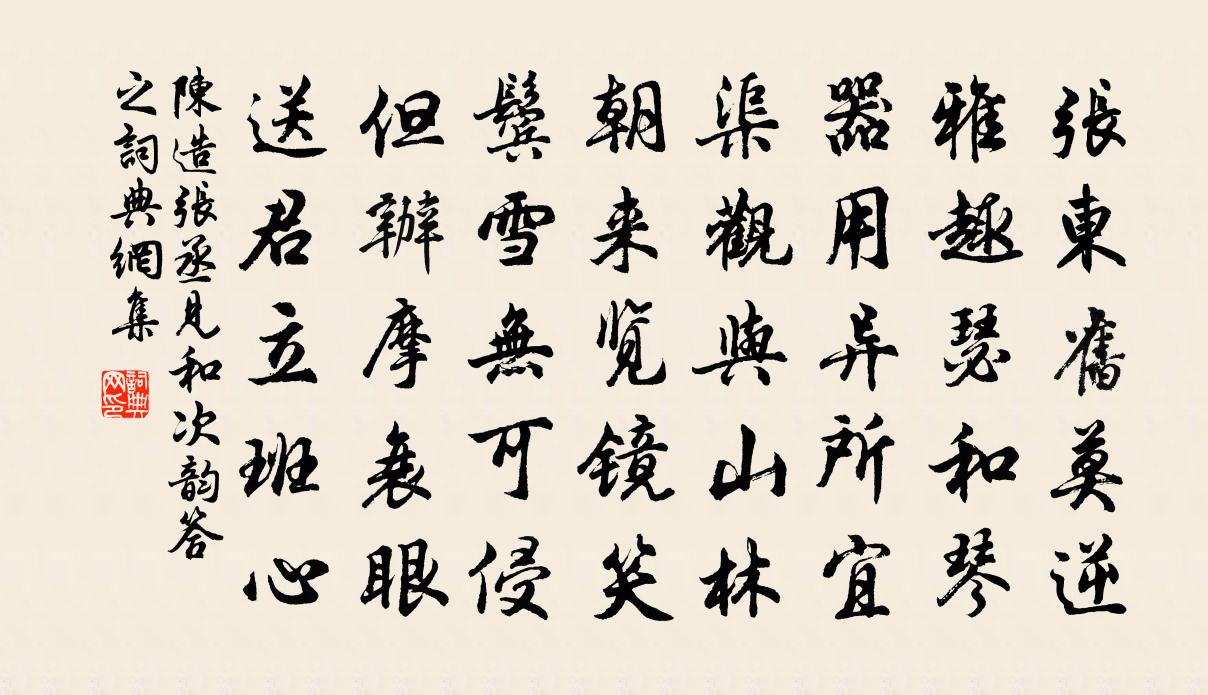 張東舊莫逆
雅趣瑟和琴
器用异所宜
渠觀與山林
朝来览镜笑
鬓雪無可侵
但辦摩衰眼
送君立班心
陳造張丞見和次韵答
之詞典網集
詞典
网印